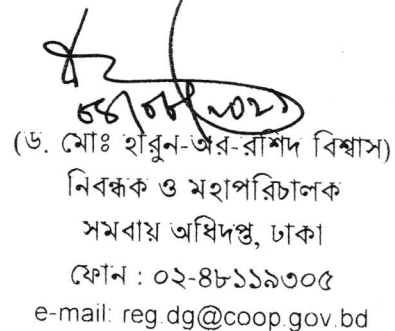 (ড. মোঃ হারুন-অর-রশিদ বিশ্বাস)
নিবন্ধক ও মহাপরিচালক
সমবায় অধিদপ্তর, ঢাকা
ফোন : ০২-৪৮১১৯৩০৫
e-mail: reg.dg@coop.gov.bd